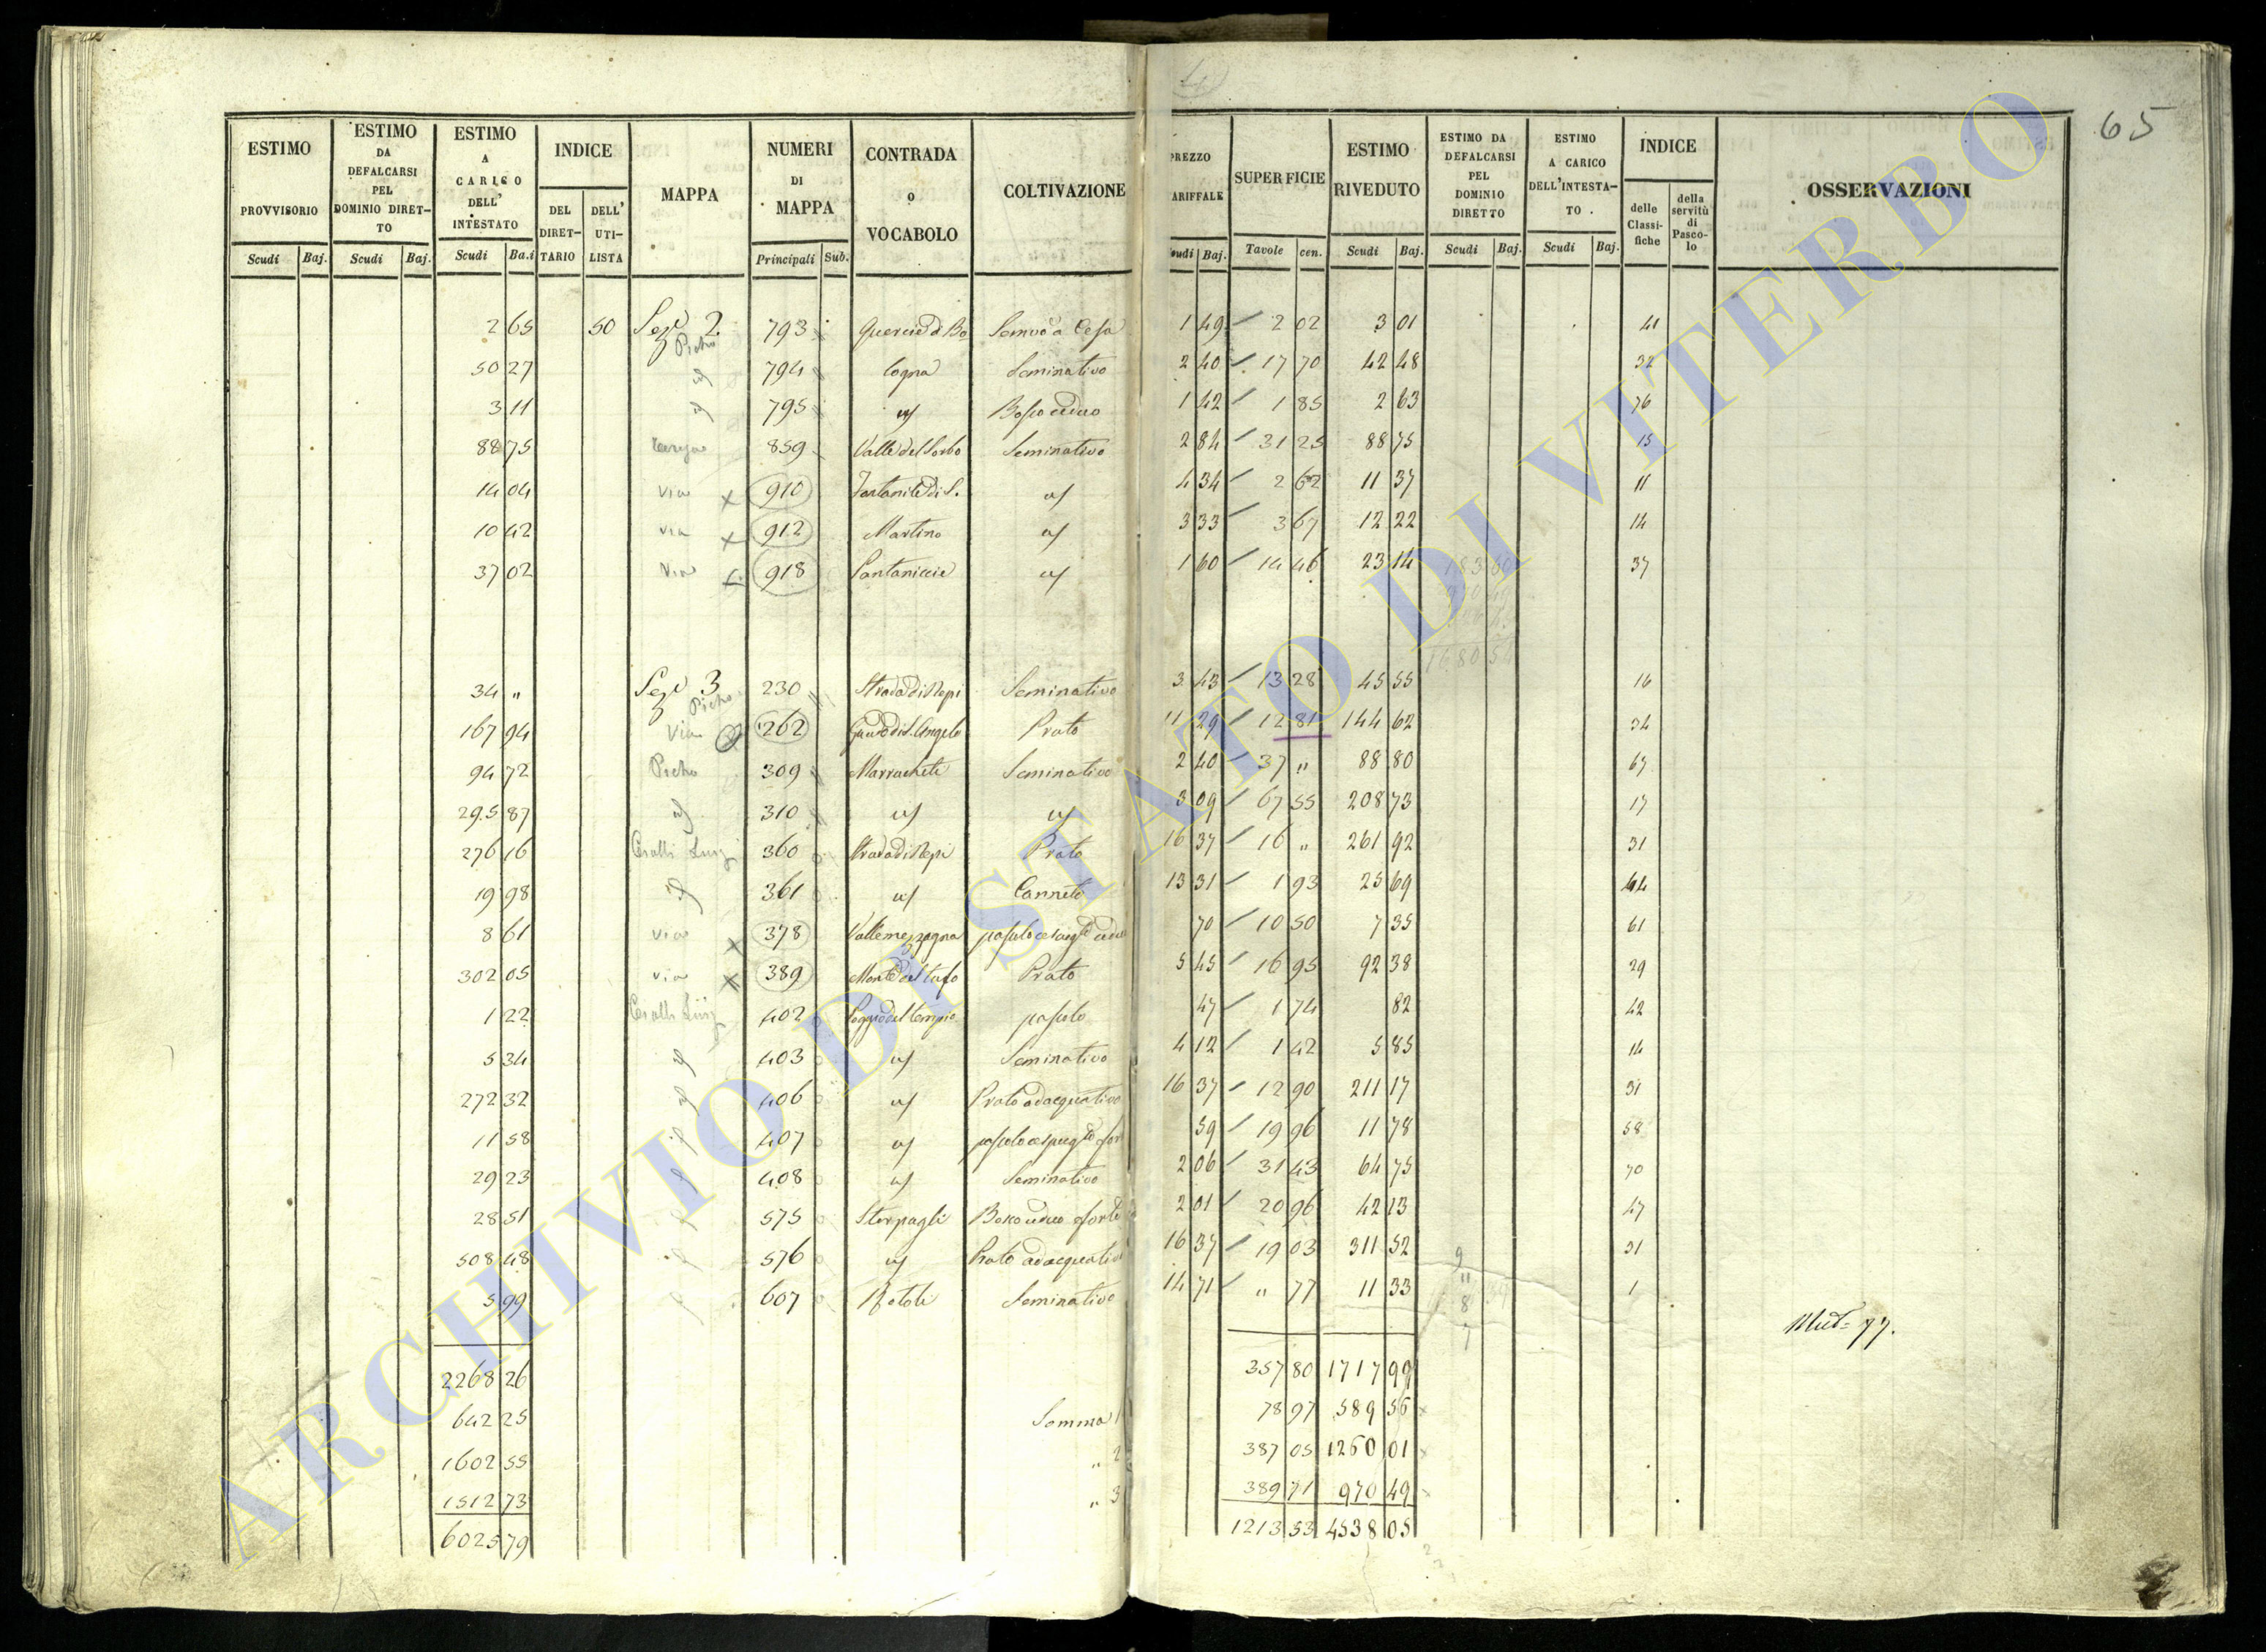 65
ESTIMO PROVVISORIO
ESTIMO DA DEFALCARSI PEL DOMINIO DIRETTO
ESTIMO A CARICO DELL' INTESTATO
INDICE
DEL DIRETTARIO
DELL' UTILISTA
MAPPA
NUMERI DI MAPPA
CONTRADA o VOCABOLO
COLTIVAZIONE
PREZZO ARIFFALE
SUPERFICIE
ESTIMO RIVEDUTO
ESTIMO DA DEFALCARSI PEL DOMINIO DIRETTO
ESTIMO A CARICO DELL'INTESTATO
INDICE
delle Classifiche
della servitù di Pascolo
OSSERVAZIONI
Scudi Baj. Scudi Baj. Scudi Ba.i Principali Sub. Scudi Baj. Tavole cen. Scudi Baj. Scudi Baj. Scudi Baj.
2 65 50 Sez. 2 793 1 49 2 02 3 01 41
Picho
50 27 794 Cogna Seminativo 2 40 17 70 42 48 32
3 11 795 Bosco ceduo 1 42 1 85 2 63 76
88 75 859 Valle del Sorbo Seminativo 2 84 31 25 88 75 15
14 04 via x 910 4 34 2 62 11 37 11
10 42 via x 912 Martino 3 33 3 67 12 22 14
37 02 via 918 Pantaniccie 1 60 14 46 23 14 37
34 " Sez. 3 230 Strada di Nepi Seminativo 3 43 13 28 45 55 16
Picho
167 94 Via 262 Guado di S. Angelo Prato 11 29 12 81 144 62 34
94 72 Picho 309 Seminativo 2 40 37 " 88 80 67
295 87 310 3 09 67 55 208 73 17
276 16 360 Strada di Nepi Prato 16 37 16 " 261 92 31
19 98 361 Canneto 13 31 1 93 25 69 44
8 61 via x 378 Valle mezzagna 70 10 50 7 35 61
302 05 via x 389 Monte del tufo Prato 5 45 16 95 92 38 29
1 22 402 Poggio del tempio pascolo 47 1 74 82 42
5 34 403 Seminativo 4 12 1 42 5 85 14
272 32 406 Prato adacquativo 16 37 12 90 211 17 31
11 58 407 59 19 96 11 78 58
29 23 408 Seminativo 2 06 31 43 64 75 70
28 51 575 Sterpaglie Bosco ceduo forte 2 01 20 96 42 13 47
508 48 576 Prato adacquativo 16 37 19 03 311 52 31
5 99 607 Seminativo 14 71 " 77 11 33 1
Mut= 77.
2268 26 357 80 1717 99
642 25 Somma 1 78 97 589 56
1602 55 " 2 387 05 1260 01
1512 73 " 3 389 71 970 49
6025 79 1213 53 4538 05
ARCHIVIO DI STATO DI VITERBO